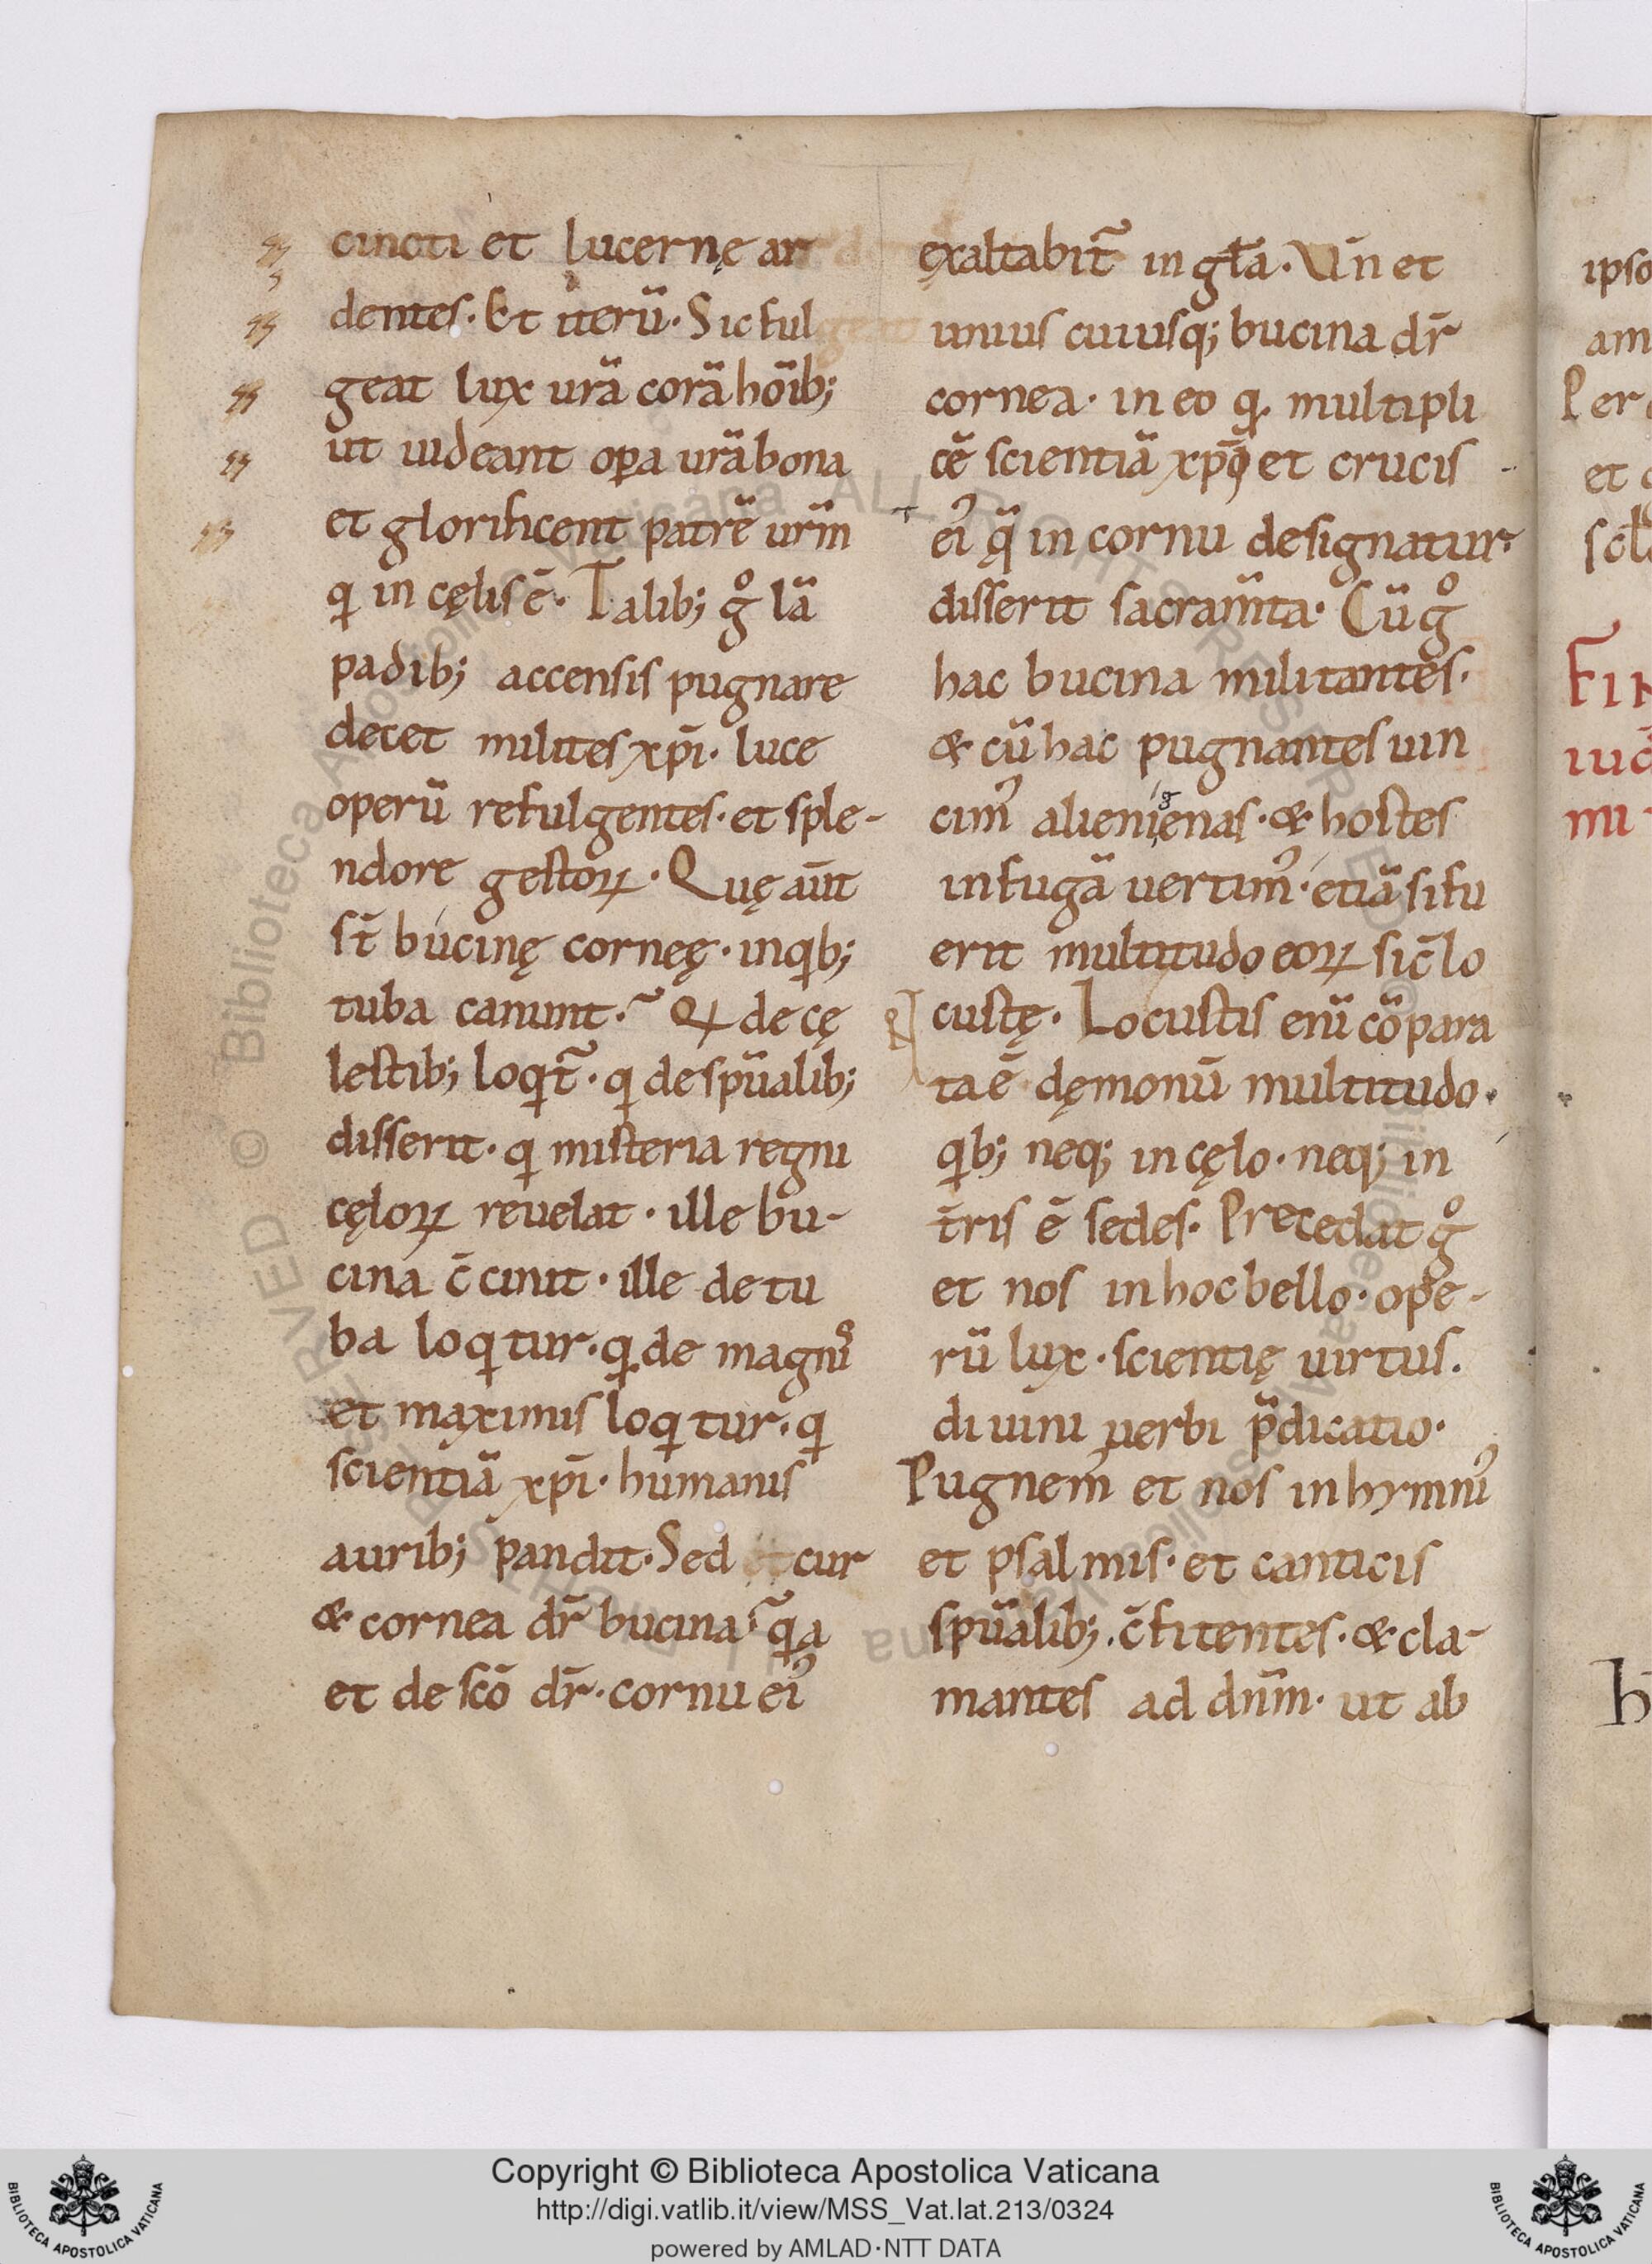 cincti et lucernę ar
dentes. Et iterū. Sic ful
geat lux urā corā hoīb;
ut uideant opa urā bona
et glorificent patrē urm̄
q in cęlis ē. Talib; gͦ lā
padib; accensis pugnare
decet milites xpi̅. luce
operū refulgentes. et sple-
ndore gestoꝝ. Quę aūt
st̄ bucinę corneę. in qb;
tuba canunt. Qꝗ de cę
lestib; loqt̄. q de spūalib;
disserit. q misteria regni
cęloꝝ reuelat. ille bu-
cina c̄cinit. ille de tu
ba loqtur. q de magnis
et maximis loqtur. q
scientiā xpi̅. humanis
aurib; pandit. Sed et cur
& cornea dr̄ bucina. qa
et de scō dr̄. cornu ei᾿
exaltabit̄ in gła. Vn̄ et
unius cuiusq; bucina dr̄
cornea. in eo q multipli
cē scientiā xpō et crucis
ei᾿ q̄ in cornu designatur.
disserit sacram̄ta. Cū gͦ
hac bucina militantes.
& cū hac pugnantes uin
cim᾿ alienigenas. & hostes
in fugā uertim᾿. etiā si fu
erit multitudo eoꝝ sic̄ lo
custę. Locustis enī cōpara
ta ē dęmonū multitudo.
qb; neq; in cęlo. neq; in
t̄ris ē sedes. Precedat gͦ
et nos in hoc bello. ope-
rū lux. scientię uirtus.
diuini uerbi p̄dicatio.
Pugnem᾿ et nos in hymni᾿
et psalmis. et canticis
spūalib;. c̄fitentes. & cla-
mantes ad dn̄m. ut ab
ipso
am
Per
et
mi
h
Copyright © Biblioteca Apostolica Vaticana
http://digi.vatlib.it/view/MSS_Vat.lat.213/0324
powered by AMLAD·NTT DATA
BIBLIOTECA APOSTOLICA VATICANA
BIBLIOTECA APOSTOLICA VATICANA